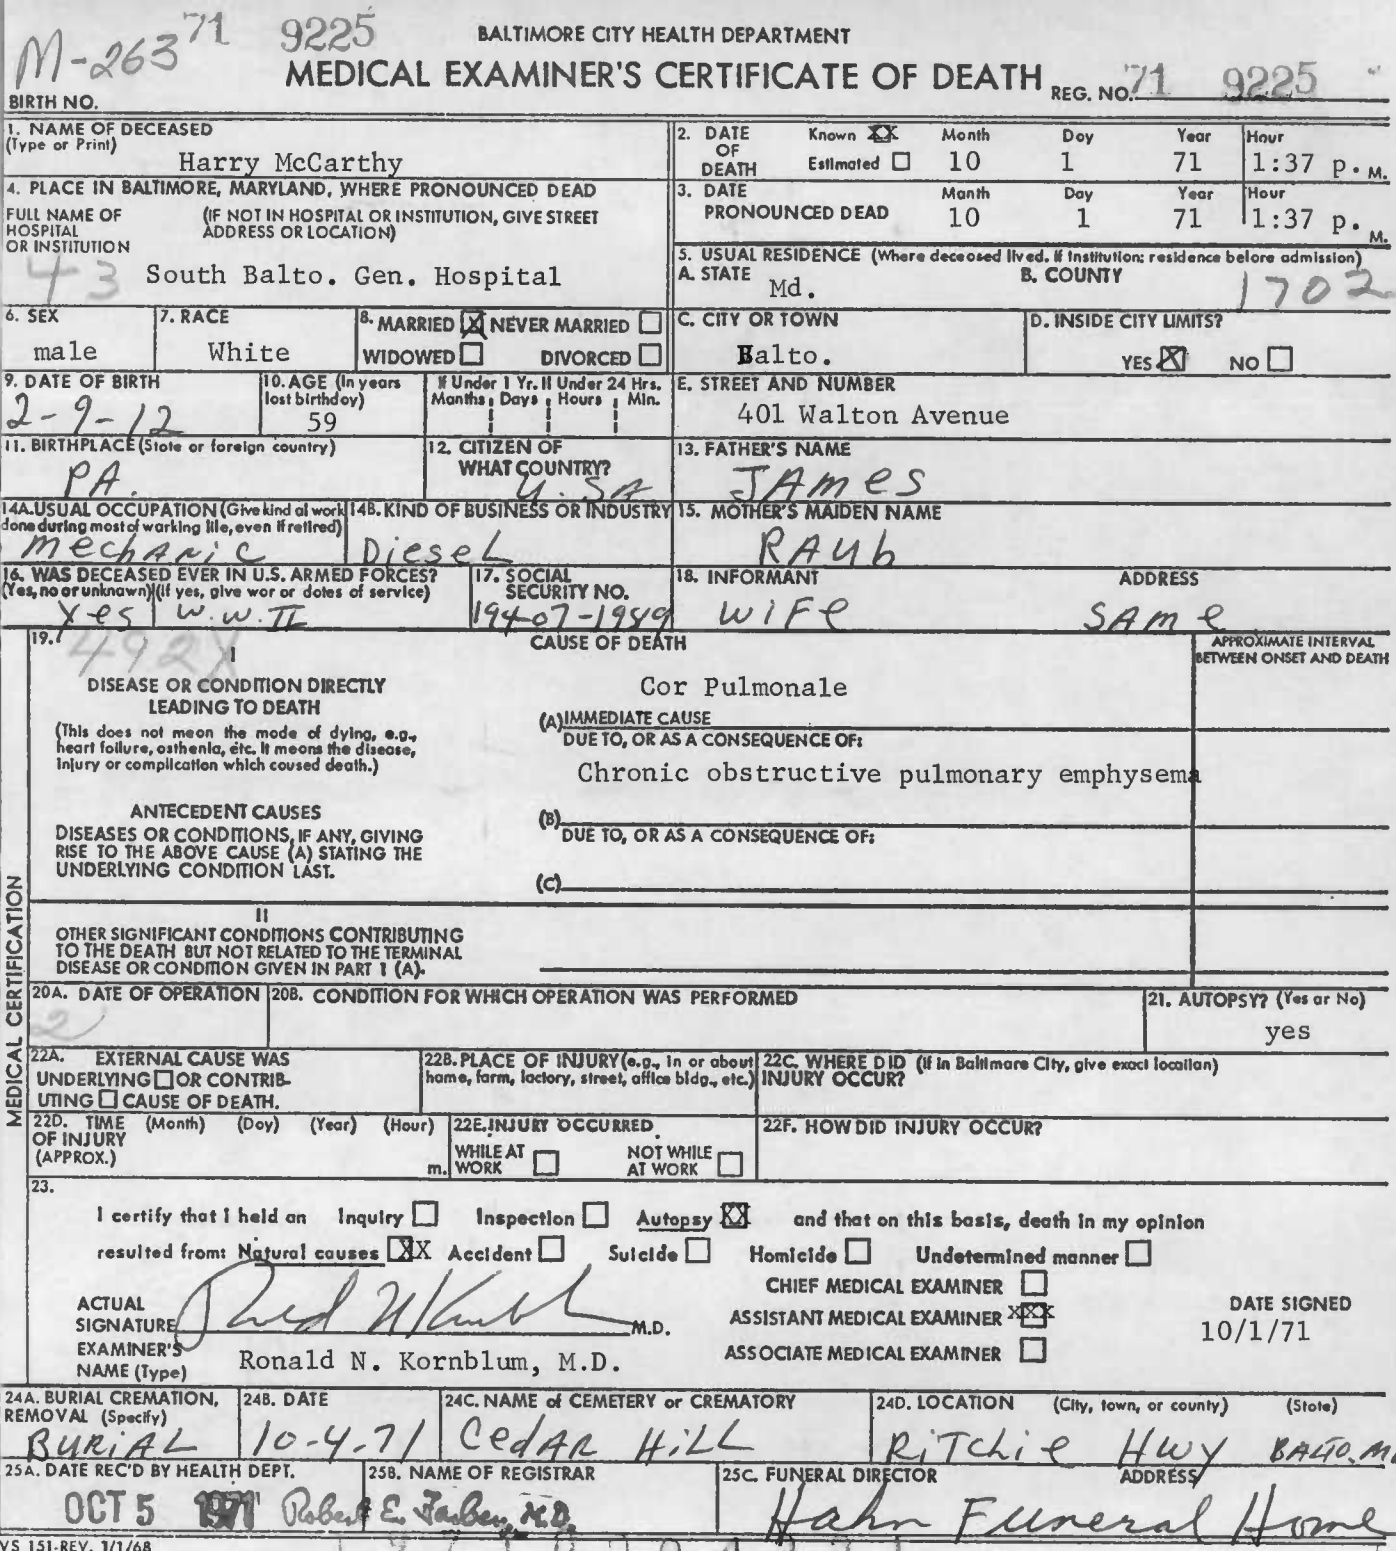 M-263 71 9225 BALTIMORE CITY HEALTH DEPARTMENT
MEDICAL EXAMINER'S CERTIFICATE OF DEATH REG. NO. 71 9225
BIRTH NO.
1. NAME OF DECEASED (Type or Print)
Harry McCarthy
2. DATE OF DEATH Known XX Estimated Month 10 Day 1 Year 71 Hour 1:37 p. M.
4. PLACE IN BALTIMORE, MARYLAND, WHERE PRONOUNCED DEAD
FULL NAME OF HOSPITAL OR INSTITUTION (IF NOT IN HOSPITAL OR INSTITUTION, GIVE STREET ADDRESS OR LOCATION)
43 South Balto. Gen. Hospital
3. DATE PRONOUNCED DEAD Month 10 Day 1 Year 71 Hour 1:37 p. M.
5. USUAL RESIDENCE (Where deceased lived. If institution: residence before admission)
A. STATE Md. B. COUNTY 1702
6. SEX male
7. RACE White
8. MARRIED X NEVER MARRIED
WIDOWED DIVORCED
C. CITY OR TOWN Balto.
D. INSIDE CITY LIMITS? YES X NO
9. DATE OF BIRTH 2-9-12
10. AGE (In years last birthday) 59
If Under 1 Yr. If Under 24 Hrs.
Months Days Hours Min.
E. STREET AND NUMBER
401 Walton Avenue
11. BIRTHPLACE (State or foreign country) PA.
12. CITIZEN OF WHAT COUNTRY? U.SA
13. FATHER'S NAME JAmes
14A. USUAL OCCUPATION (Give kind of work done during most of working life, even if retired) mechanic
14B. KIND OF BUSINESS OR INDUSTRY DieseL
15. MOTHER'S MAIDEN NAME RAub
16. WAS DECEASED EVER IN U.S. ARMED FORCES?
(Yes, no or unknown) (If yes, give wor or dates of service)
yes W.W.II
17. SOCIAL SECURITY NO. 194-07-1989
18. INFORMANT WIFE ADDRESS SAme
19. 492X CAUSE OF DEATH APPROXIMATE INTERVAL BETWEEN ONSET AND DEATH
I
DISEASE OR CONDITION DIRECTLY LEADING TO DEATH
(This does not mean the mode of dying, e.g., heart failure, asthenia, etc. It means the disease, injury or complication which caused death.)
Cor Pulmonale
(A) IMMEDIATE CAUSE
DUE TO, OR AS A CONSEQUENCE OF:
Chronic obstructive pulmonary emphysema
ANTECEDENT CAUSES
DISEASES OR CONDITIONS, IF ANY, GIVING RISE TO THE ABOVE CAUSE (A) STATING THE UNDERLYING CONDITION LAST.
(B)
DUE TO, OR AS A CONSEQUENCE OF:
(C)
II
OTHER SIGNIFICANT CONDITIONS CONTRIBUTING TO THE DEATH BUT NOT RELATED TO THE TERMINAL DISEASE OR CONDITION GIVEN IN PART 1 (A).
MEDICAL CERTIFICATION
20A. DATE OF OPERATION 2
20B. CONDITION FOR WHICH OPERATION WAS PERFORMED
21. AUTOPSY? (Yes or No) yes
22A. EXTERNAL CAUSE WAS UNDERLYING OR CONTRIBUTING CAUSE OF DEATH.
22B. PLACE OF INJURY (e.g., in or about home, farm, factory, street, office bldg., etc.)
22C. WHERE DID INJURY OCCUR? (If in Baltimore City, give exact location)
22D. TIME OF INJURY (APPROX.) (Month) (Day) (Year) (Hour) m.
22E. INJURY OCCURRED
WHILE AT WORK NOT WHILE AT WORK
22F. HOW DID INJURY OCCUR?
23.
I certify that I held an Inquiry Inspection Autopsy XX and that on this basis, death in my opinion
resulted from: Natural causes XX Accident Suicide Homicide Undetermined manner
ACTUAL SIGNATURE M.D.
EXAMINER'S NAME (Type) Ronald N. Kornblum, M.D.
CHIEF MEDICAL EXAMINER
ASSISTANT MEDICAL EXAMINER XXX
ASSOCIATE MEDICAL EXAMINER
DATE SIGNED
10/1/71
24A. BURIAL CREMATION, REMOVAL (Specify) BURIAL
24B. DATE 10-4-71
24C. NAME of CEMETERY or CREMATORY CedAR HiLL
24D. LOCATION (City, town, or county) (State)
RiTchie Hwy BALTO. Md
25A. DATE REC'D BY HEALTH DEPT. OCT 5 1971
25B. NAME OF REGISTRAR Robert E. Farber, M.D.
25C. FUNERAL DIRECTOR ADDRESS
Hahn Funeral Home
VS 151-REV. 1/1/68